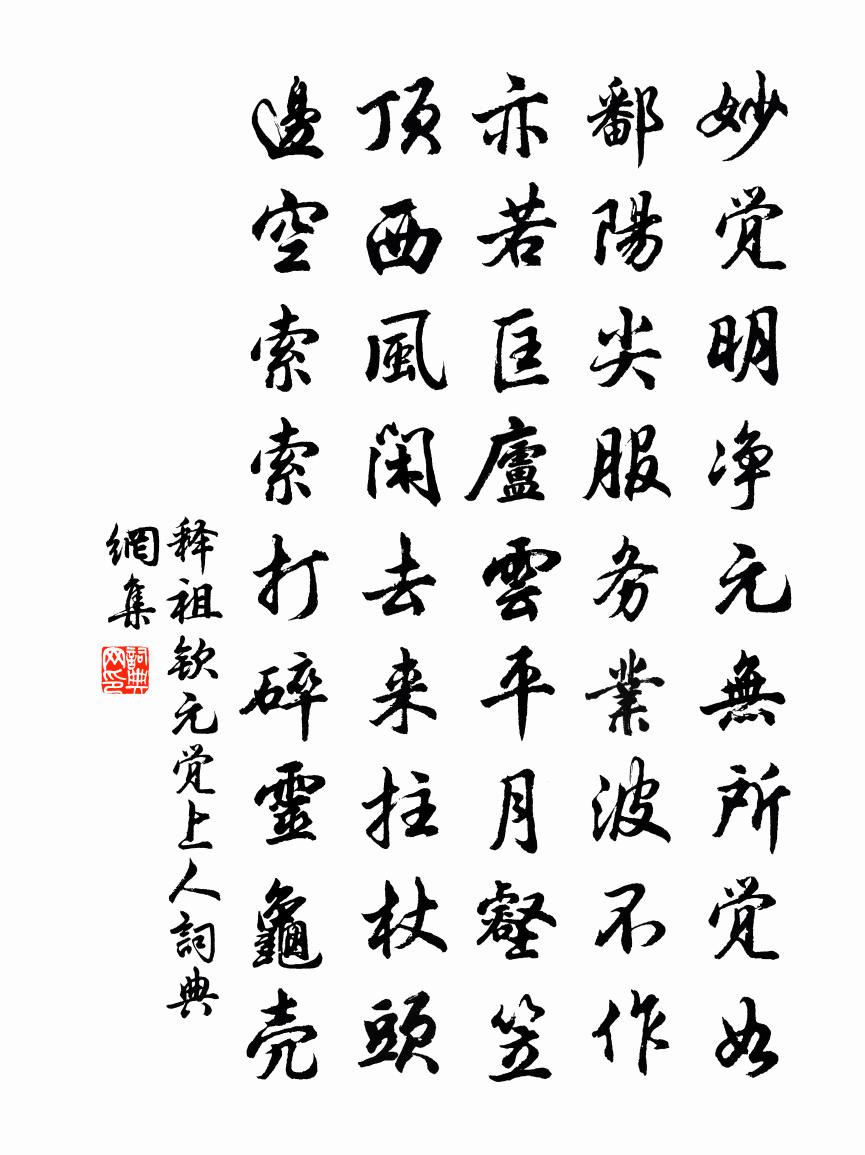 妙觉明净元無所觉如
鄱陽尖服务業波不作
亦若匡廬雲平月壑笠
頂西風闲去来拄杖頭
邊空索索打碎靈龜壳
释祖钦元觉上人詞典
網集
詞典
网印